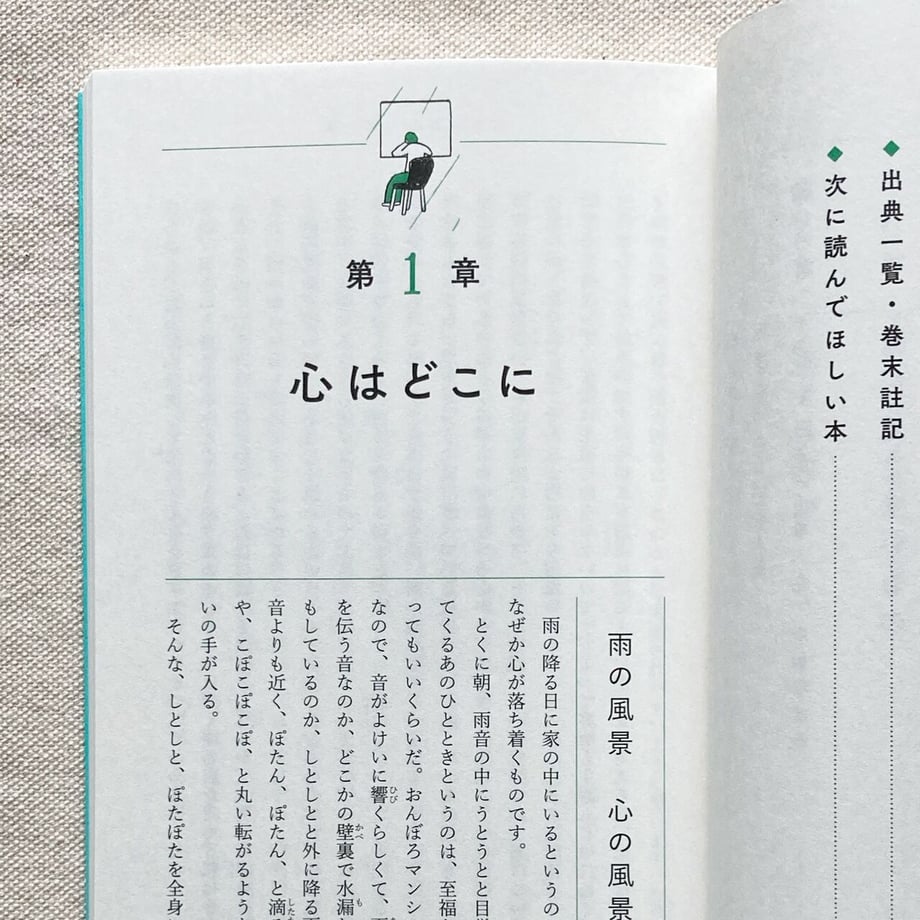 出典一覧・巻末註記
次に読んでほしい本
第1章
心はどこに
雨の風景 心の風景
雨の降る日に家の中にいるというの
なぜか心が落ち着くものです。
とくに朝、雨音の中にうとうとと目
てくるあのひとときというのは、至福
ってもいいくらいだ。おんぼろマンシ
なので、音がよけいに響くらしくて、
を伝う音なのか、どこかの壁裏で水漏
もしているのか、しとしとと外に降る
音よりも近く、ぽたん、ぽたん、と滴
や、こぽこぽこぽ、と丸い転がるよう
いの手が入る。
そんな、しとしと、ぽたぽたを全身